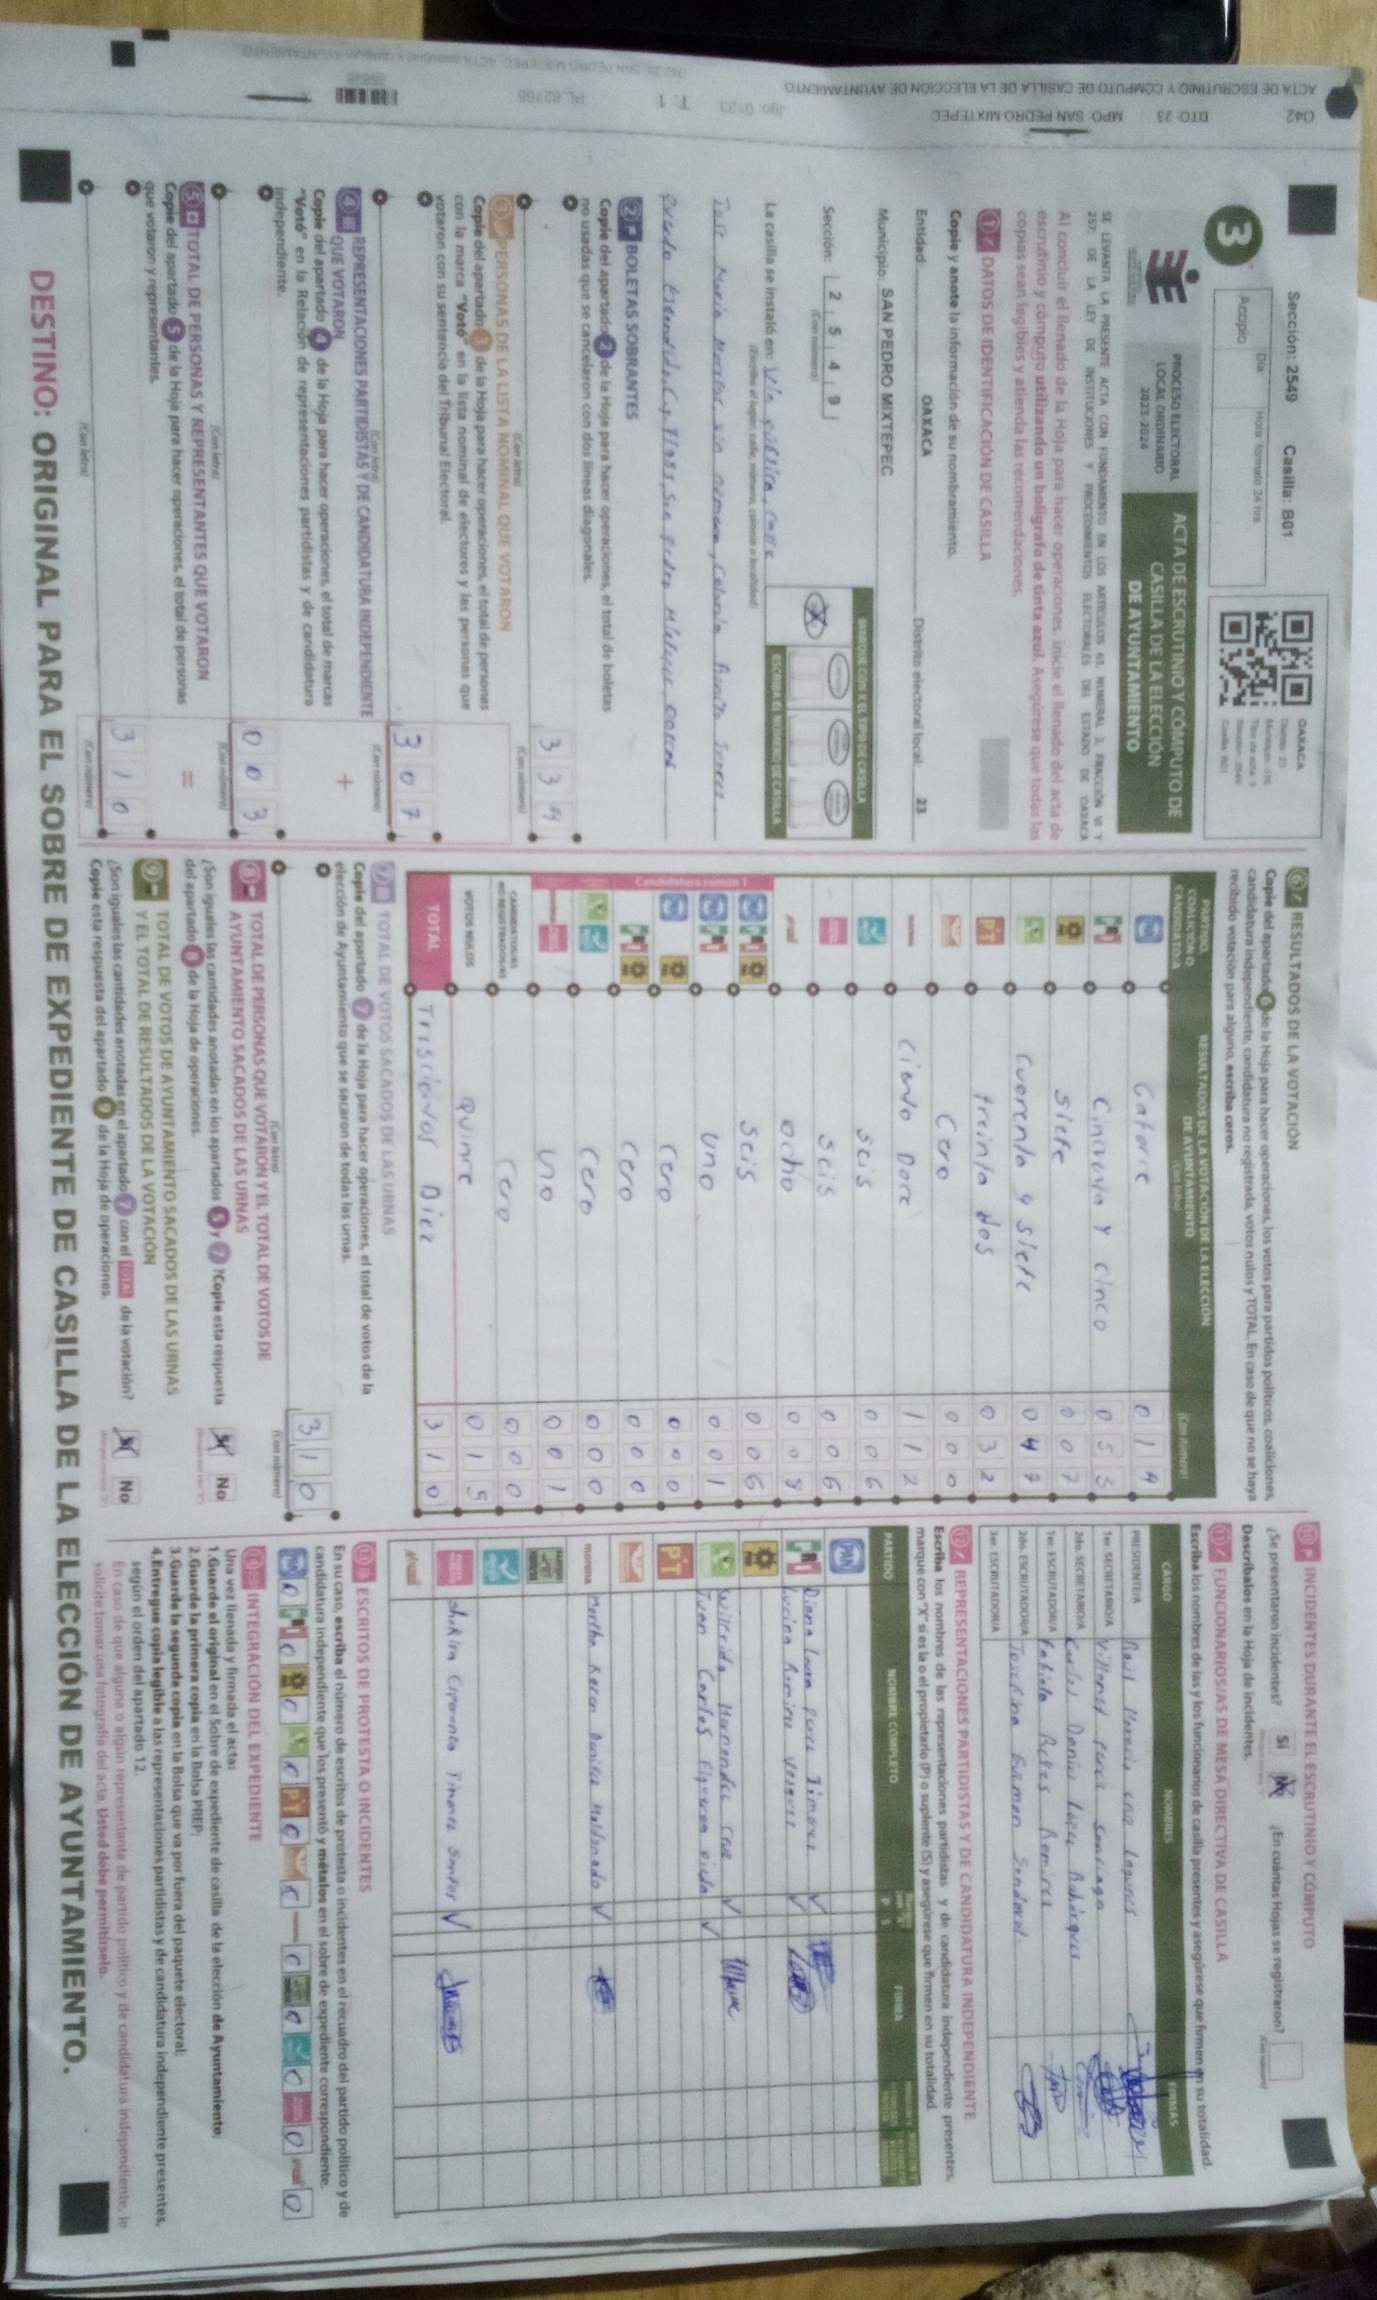 Sección: 2549 Casilla: B01
3
Acopio
Día
Hora: formato 24 hrs
OAXACA
PROCESO ELECTORAL
LOCAL ORDINARIO
2023-2024
ACTA DE ESCRUTINIO Y CÓMPUTO DE
CASILLA DE LA ELECCIÓN
DE AYUNTAMIENTO
SE LEVANTA LA PRESENTE ACTA CON FUNDAMENTO EN LOS ARTÍCULOS 63, NUMERAL 2, FRACCIÓN VI Y
257; DE LA LEY DE INSTITUCIONES Y PROCEDIMIENTOS ELECTORALES DEL ESTADO DE OAXACA
Al concluir el llenado de la Hoja para hacer operaciones, inicie el llenado del acta de
escrutinio y cómputo utilizando un bolígrafo de tinta azul. Asegúrese que todas las
copias sean legibles y atienda las recomendaciones.
1 DATOS DE IDENTIFICACIÓN DE CASILLA
Copie y anote la información de su nombramiento.
Entidad: OAXACA Distrito electoral local: 23
Municipio: SAN PEDRO MIXTEPEC
Sección: 2 5 4 9
(Con número)
MARQUE CON X EL TIPO DE CASILLA
X
ESCRIBA EL NÚMERO DE CASILLA
La casilla se instaló en: Vía pública, Calle
José María Morelos sin número, Colonia Benito Juárez,
2 BOLETAS SOBRANTES
Copie del apartado 2 de la Hoja para hacer operaciones, el total de boletas
no usadas que se cancelaron con dos líneas diagonales.
3 3 4
(Con letra) (Con número)
3 PERSONAS DE LA LISTA NOMINAL QUE VOTARON
Copie del apartado 3 de la Hoja para hacer operaciones, el total de personas
con la marca "Votó" en la lista nominal de electores y las personas que
votaron con su sentencia del Tribunal Electoral.
3 0 7
(Con letra) (Con número)
4 REPRESENTACIONES PARTIDISTAS Y DE CANDIDATURA INDEPENDIENTE
QUE VOTARON
+
Copie del apartado 4 de la Hoja para hacer operaciones, el total de marcas
"Votó" en la Relación de representaciones partidistas y de candidatura
independiente.
0 0 3
(Con letra) (Con número)
5 TOTAL DE PERSONAS Y REPRESENTANTES QUE VOTARON
=
Copie del apartado 5 de la Hoja para hacer operaciones, el total de personas
que votaron y representantes.
3 1 0
(Con letra) (Con número)
6 RESULTADOS DE LA VOTACIÓN
Copie del apartado 6 de la Hoja para hacer operaciones, los votos para partidos políticos, coaliciones,
candidatura independiente, candidatura no registrada, votos nulos y TOTAL. En caso de que no se haya
recibido votación para alguno, escriba ceros.
PARTIDO, COALICIÓN O CANDIDATO/A
RESULTADOS DE LA VOTACIÓN DE LA ELECCIÓN DE AYUNTAMIENTO
(Con letra) (Con número)
Catorce 0 1 4
Cincuenta y cinco 0 5 5
Siete 0 0 7
Cuarenta y siete 0 4 7
PT treinta dos 0 3 2
Cero 0 0 0
Ciento Doce 1 1 2
seis 0 0 6
seis 0 0 6
ocho 0 0 8
Candidatura común 1
seis 0 0 6
uno 0 0 1
Cero 0 0 0
Cero 0 0 0
Cero 0 0 0
uno 0 0 1
CANDIDATO/AS NO REGISTRADO/AS Cero 0 0 0
VOTOS NULOS Quince 0 1 5
TOTAL Trescientos Diez 3 1 0
7 TOTAL DE VOTOS SACADOS DE LAS URNAS
Copie del apartado 7 de la Hoja para hacer operaciones, el total de votos de la
elección de Ayuntamiento que se sacaron de todas las urnas.
3 1 0
(Con letra) (Con número)
8 TOTAL DE PERSONAS QUE VOTARON Y EL TOTAL DE VOTOS DE
AYUNTAMIENTO SACADOS DE LAS URNAS
¿Son iguales las cantidades anotadas en los apartados 5 y 7? Copie esta respuesta
del apartado 8 de la Hoja de operaciones.
Sí No
9 TOTAL DE VOTOS DE AYUNTAMIENTO SACADOS DE LAS URNAS
Y EL TOTAL DE RESULTADOS DE LA VOTACIÓN
¿Son iguales las cantidades anotadas en el apartado 7 con el TOTAL de la votación?
Copie esta respuesta del apartado 9 de la Hoja de operaciones.
Sí No
10 INCIDENTES DURANTE EL ESCRUTINIO Y CÓMPUTO
¿Se presentaron incidentes? Sí No ¿En cuántas Hojas se registraron?
Descríbalos en la Hoja de incidentes.
11 FUNCIONARIOS/AS DE MESA DIRECTIVA DE CASILLA
Escriba los nombres de las y los funcionarios de casilla presentes y asegúrese que firmen en su totalidad.
CARGO NOMBRES FIRMAS
PRESIDENTE/A
1er. SECRETARIO/A
2do. SECRETARIO/A
1er. ESCRUTADOR/A
2do. ESCRUTADOR/A
3er. ESCRUTADOR/A
12 REPRESENTACIONES PARTIDISTAS Y DE CANDIDATURA INDEPENDIENTE
Escriba los nombres de las representaciones partidistas y de candidatura independiente presentes,
marque con "X" si es la o el propietario (P) o suplente (S) y asegúrese que firmen en su totalidad.
PARTIDO NOMBRE COMPLETO P S FIRMA
PAN
PT
morena
13 ESCRITOS DE PROTESTA O INCIDENTES
En su caso, escriba el número de escritos de protesta o incidentes en el recuadro del partido político y de
candidatura independiente que los presentó y métalos en el sobre de expediente correspondiente.
14 INTEGRACIÓN DEL EXPEDIENTE
Una vez llenada y firmada el acta:
1.Guarde el original en el Sobre de expediente de casilla de la elección de Ayuntamiento;
2.Guarde la primera copia en la Bolsa PREP;
3.Guarde la segunda copia en la Bolsa que va por fuera del paquete electoral;
4.Entregue copia legible a las representaciones partidistas y de candidatura independiente presentes,
según el orden del apartado 12.
En caso de que alguna o algún representante de partido político y de candidatura independiente, le
solicite tomar una fotografía del acta. Usted debe permitírselo.
DESTINO: ORIGINAL PARA EL SOBRE DE EXPEDIENTE DE CASILLA DE LA ELECCIÓN DE AYUNTAMIENTO.
042 DTO: 23 MPO: SAN PEDRO MIXTEPEC
ACTA DE ESCRUTINIO Y CÓMPUTO DE CASILLA DE LA ELECCIÓN DE AYUNTAMIENTO